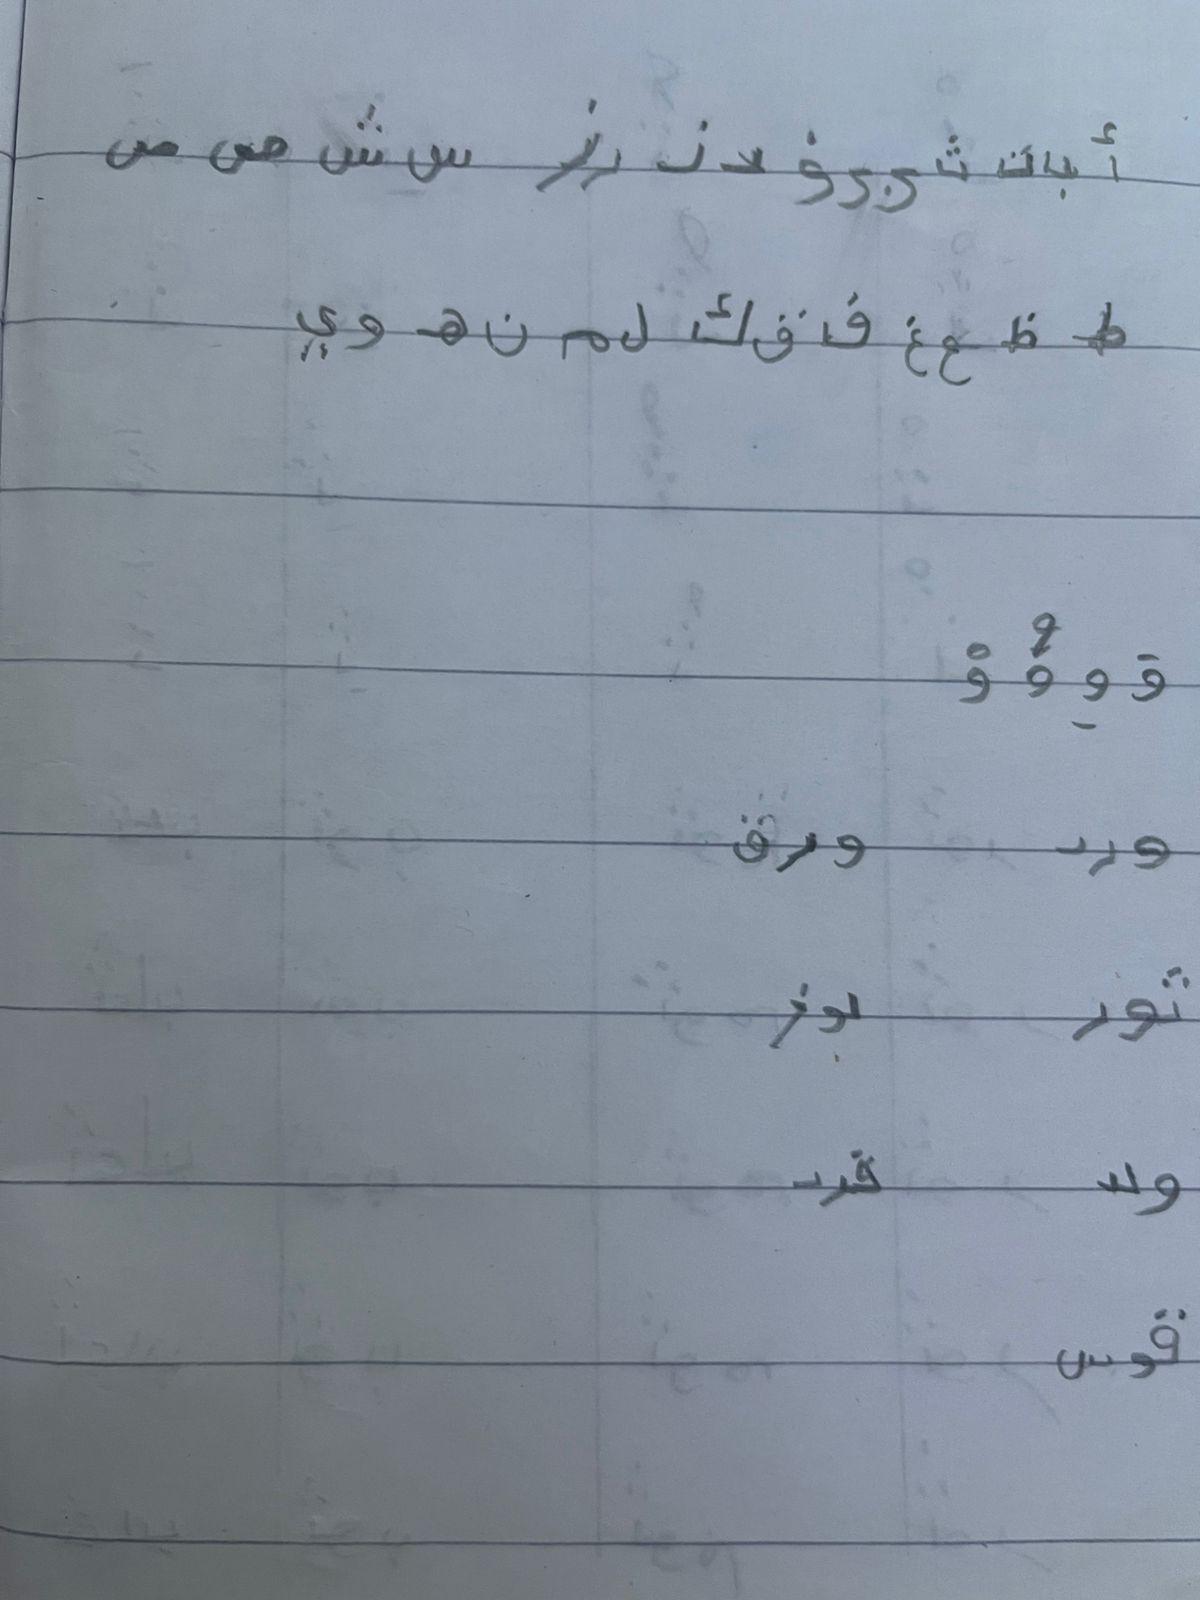 أ ب ت ث ج ح خ د ذ ر ز س ش ص ض
ط ظ ع غ ف ق ك ل م ن ه و ي
وَ وِ وُ وْ
ورد ورق
ثور لوز
ولد قرد
قوس